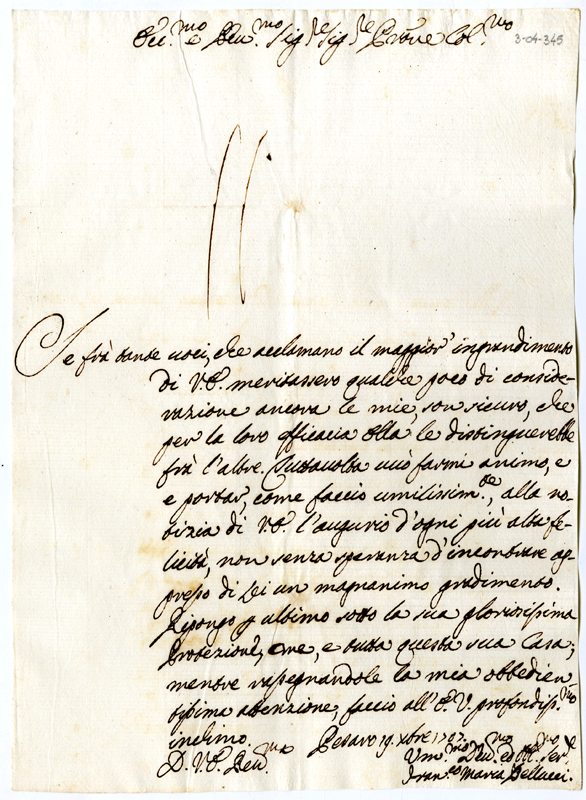 Ecc.mo e Rev.mo Sig.re Sig.re Prone Col.mo
3-04-345
Se frà tante voci, che acclamano il maggior' ingrandimento
di V.E. meritassero qualche poco di conside-
razione ancora le mie, son sicuro, che
per la loro efficacia Ella le distinguerebbe
frà l'altre. Tuttavolta vuò farmi animo, e
e portar, come faccio umilissim.te, alla no-
tizia di V.E. l'augurio d'ogni più alta fe-
licità, non senza speranza d'incontrare ap-
presso di Lei un magnanimo gradimento.
Ripongo p ultimo sotto la sua gloriosissima
Protezione, me, e tutta questa sua Casa;
mentre rassegnandole la mia obbedien-
tissima attenzione, faccio all'E.V. profondiss.mo
inchino. Pesaro 19. Xbre 1707.
D. V.E. Rev.ma
Um.mo Dev.mo ed Obb.mo Ser.e
Fran.co Maria Bellucci.